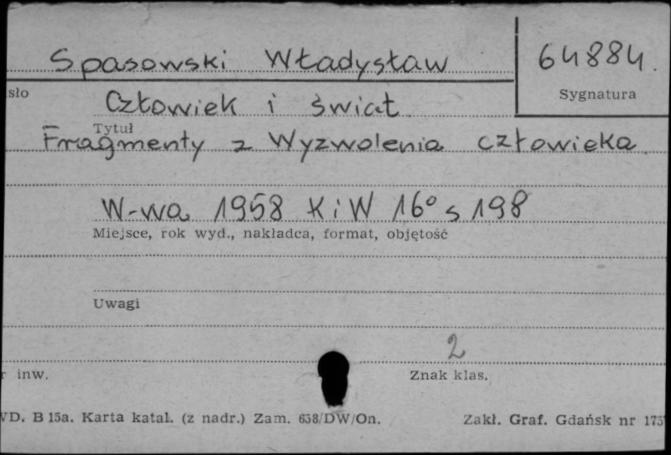 Spasowski Władysław
64884.
sło
Sygnatura
Człowiek i świat
Tytuł
Fragmenty z Wyzwolenia człowieka
W-wa 1958 KiW 16° s 198
Miejsce, rok wyd., nakładca, format, objętość
Uwagi
2
r inw.
Znak klas.
VD. B 15a. Karta katal. (z nadr.) Zam. 658/DW/On.
Zakł. Graf. Gdańsk nr 175